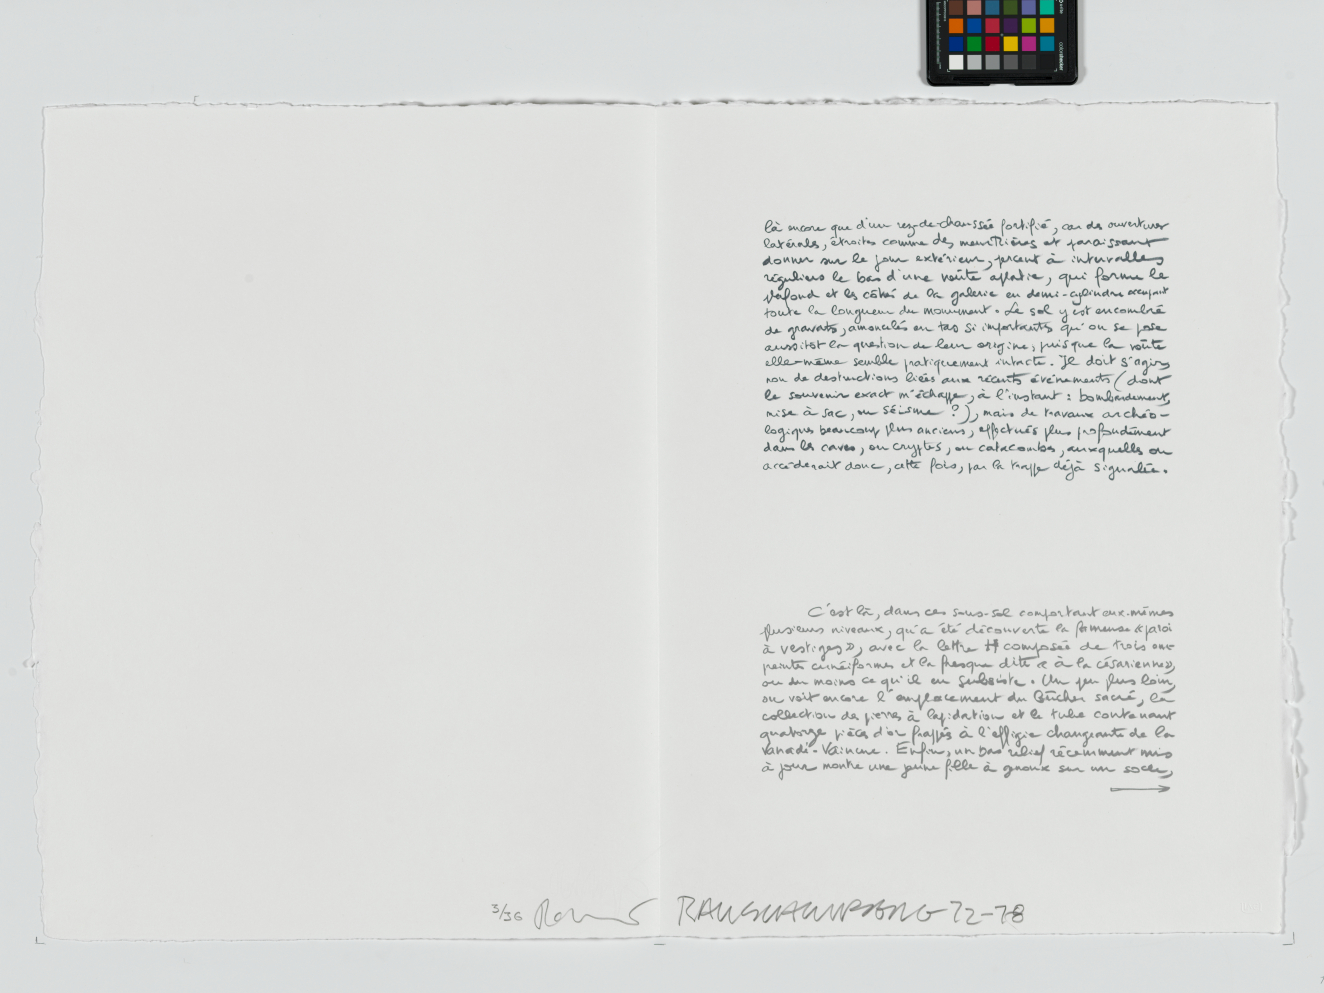 là encore que d'un rez-de-chaussée fortifié, car des ouvertures
latérales, étroites comme des meurtrières et paraissant
donner sur le jour extérieur, percent à intervalles
réguliers le bas d'une voûte aplatie, qui forme le
plafond et les côtés de la galerie en demi-cylindre occupant
toute la longueur du monument. Le sol y est encombré
de gravats, amoncelés en tas si importants qu'on se pose
aussitôt la question de leur origine, puisque la voûte
elle-même semble pratiquement intacte. Il doit s'agir,
non de destructions liées aux récents événements (dont
le souvenir exact m'échappe, à l'instant : bombardement,
mise à sac, ou séisme ?), mais de travaux archéo-
logiques beaucoup plus anciens, effectués plus profondément
dans les caves, ou cryptes, ou catacombes, auxquelles on
accéderait donc, cette fois, par la trappe déjà signalée.
C'est là, dans ces sous-sol comportant eux-mêmes
plusieurs niveaux, qu'a été découverte la fameuse « paroi
à vestiges », avec la lettre H composée de trois em-
preintes cunéiformes et la fresque dite « à la césarienne »,
ou du moins ce qu'il en subsiste. Un peu plus loin,
on voit encore l'emplacement du Bûcher sacré, la
collection de pierres à lapidation et le tube contenant
quatorze pièces d'or frappés à l'effigie changeante de la
Vanadé-Vaincue. Enfin, un bas relief récemment mis
à jour montre une jeune fille à genoux sur un socle,
3/36 RAUSCHENBERG 72-78